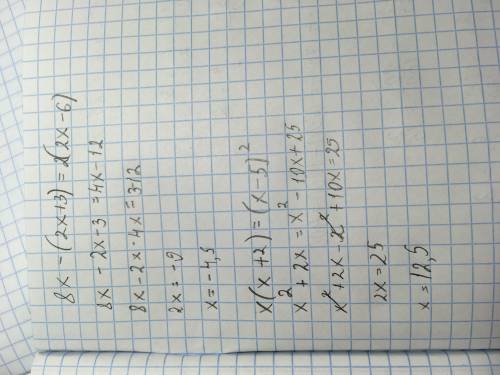 8x - (2x+3) = 2(2x-6)
8x - 2x - 3 = 4x - 12
8x - 2x - 4x = 312
2x = -9
x = -4,5
x(x+2) = (x-5)²
x² + 2x = x² - 10x + 25
x² + 2x - x² + 10x = 25
2x = 25
x = 12,5